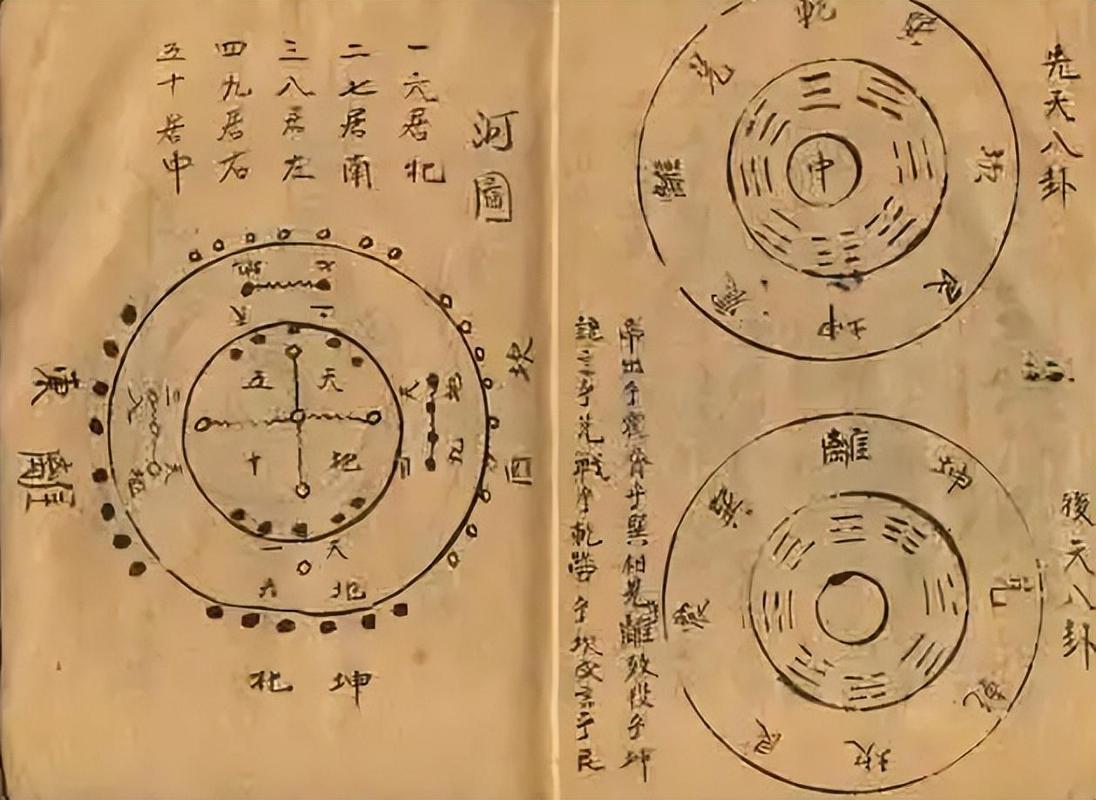 先天八卦
乾
兌
巽
離
中
坎
震
艮
坤
後天八卦
離
坤
巽
震
兌
乾
艮
坎
帝出乎震齊乎巽相見離致役乎坤
說言乎兌戰乎乾勞乎坎成言乎艮
河圖
一六居北
二七居南
三八居左
四九居右
五十居中
地七
天二
東
離
三
八
天
五
天
十
地
地
九
坎
西
一
天
六
地
北
坤